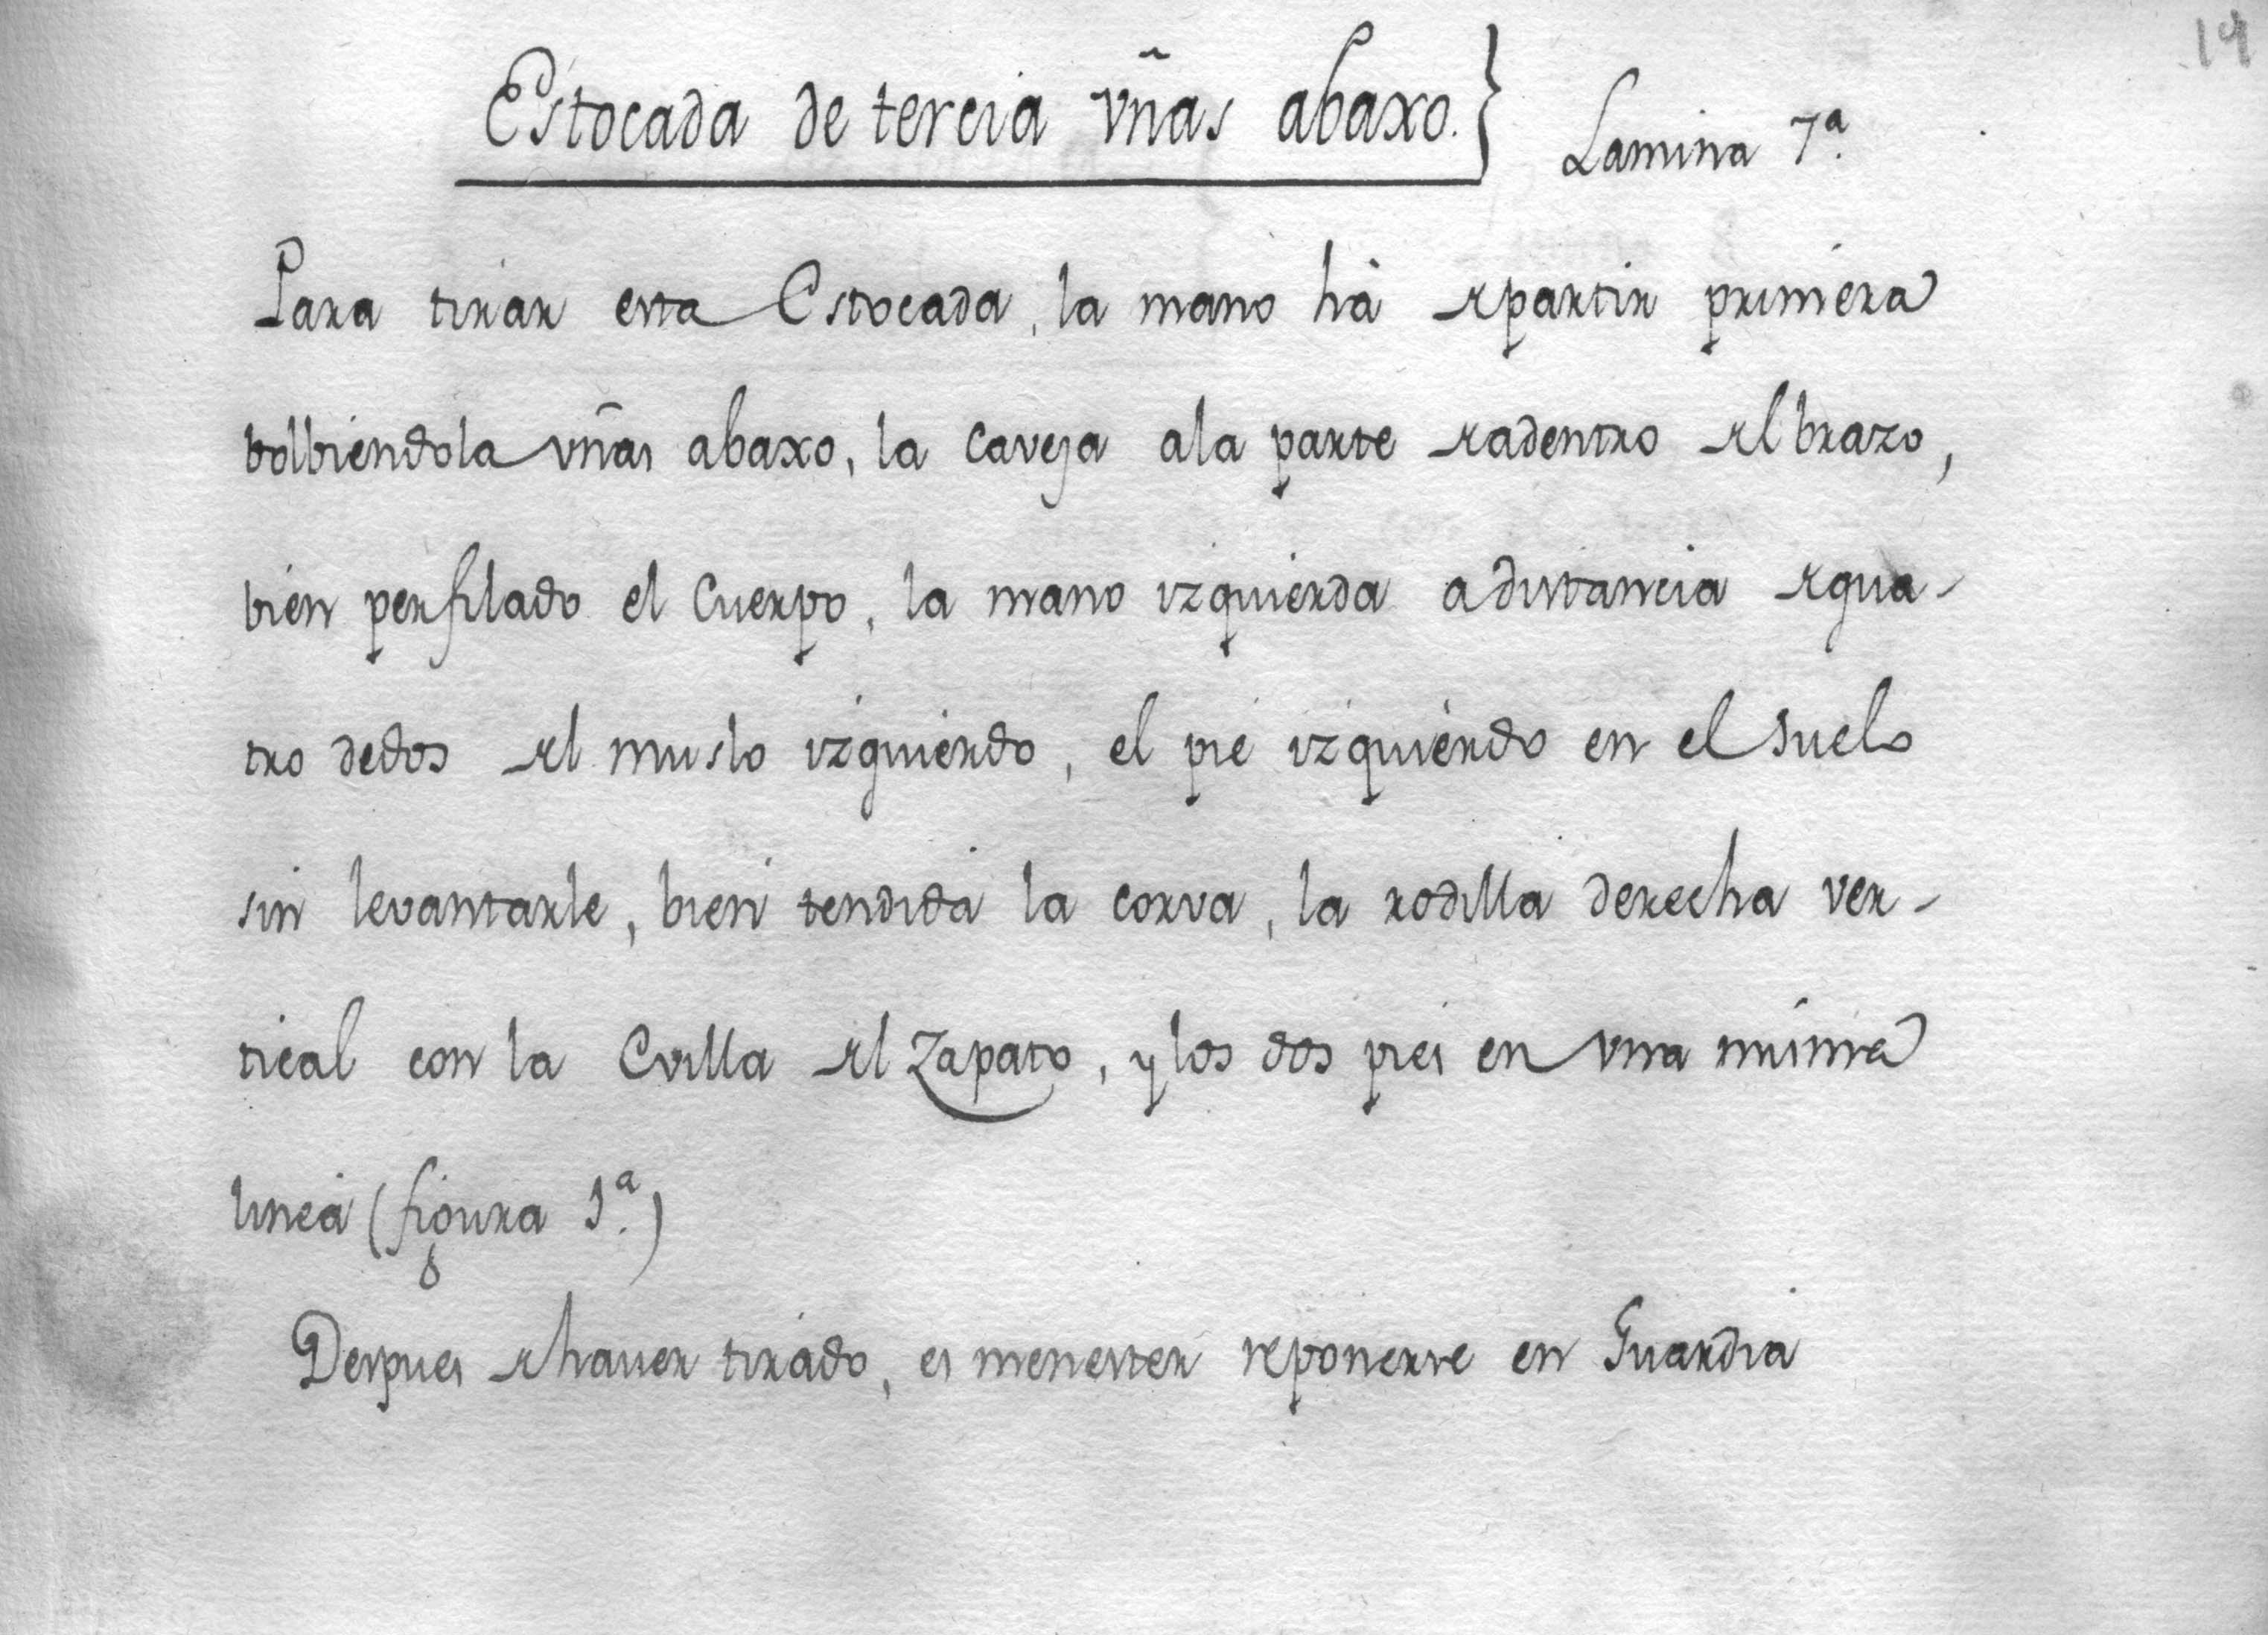 14
Estocada de tercia vñas abaxo. } Lamina 7ª.
Para tirar esta Estocada, la mano hà de partir primera
bolbiendola vñas abaxo, la caveza ala parte de adentro del brazo,
bien perfilado el Cuerpo, la mano izquierda a distancia de qua-
tro dedos del muslo izquierdo, el pie izquierdo en el suelo
sin levantarle, bien tendida la corva, la rodilla derecha ver-
tical con la Evilla del Zapato, y los dos pies en vna misma
linea (figura 1ª.)
Despues de haver tirado, es menester reponerse en Guardia